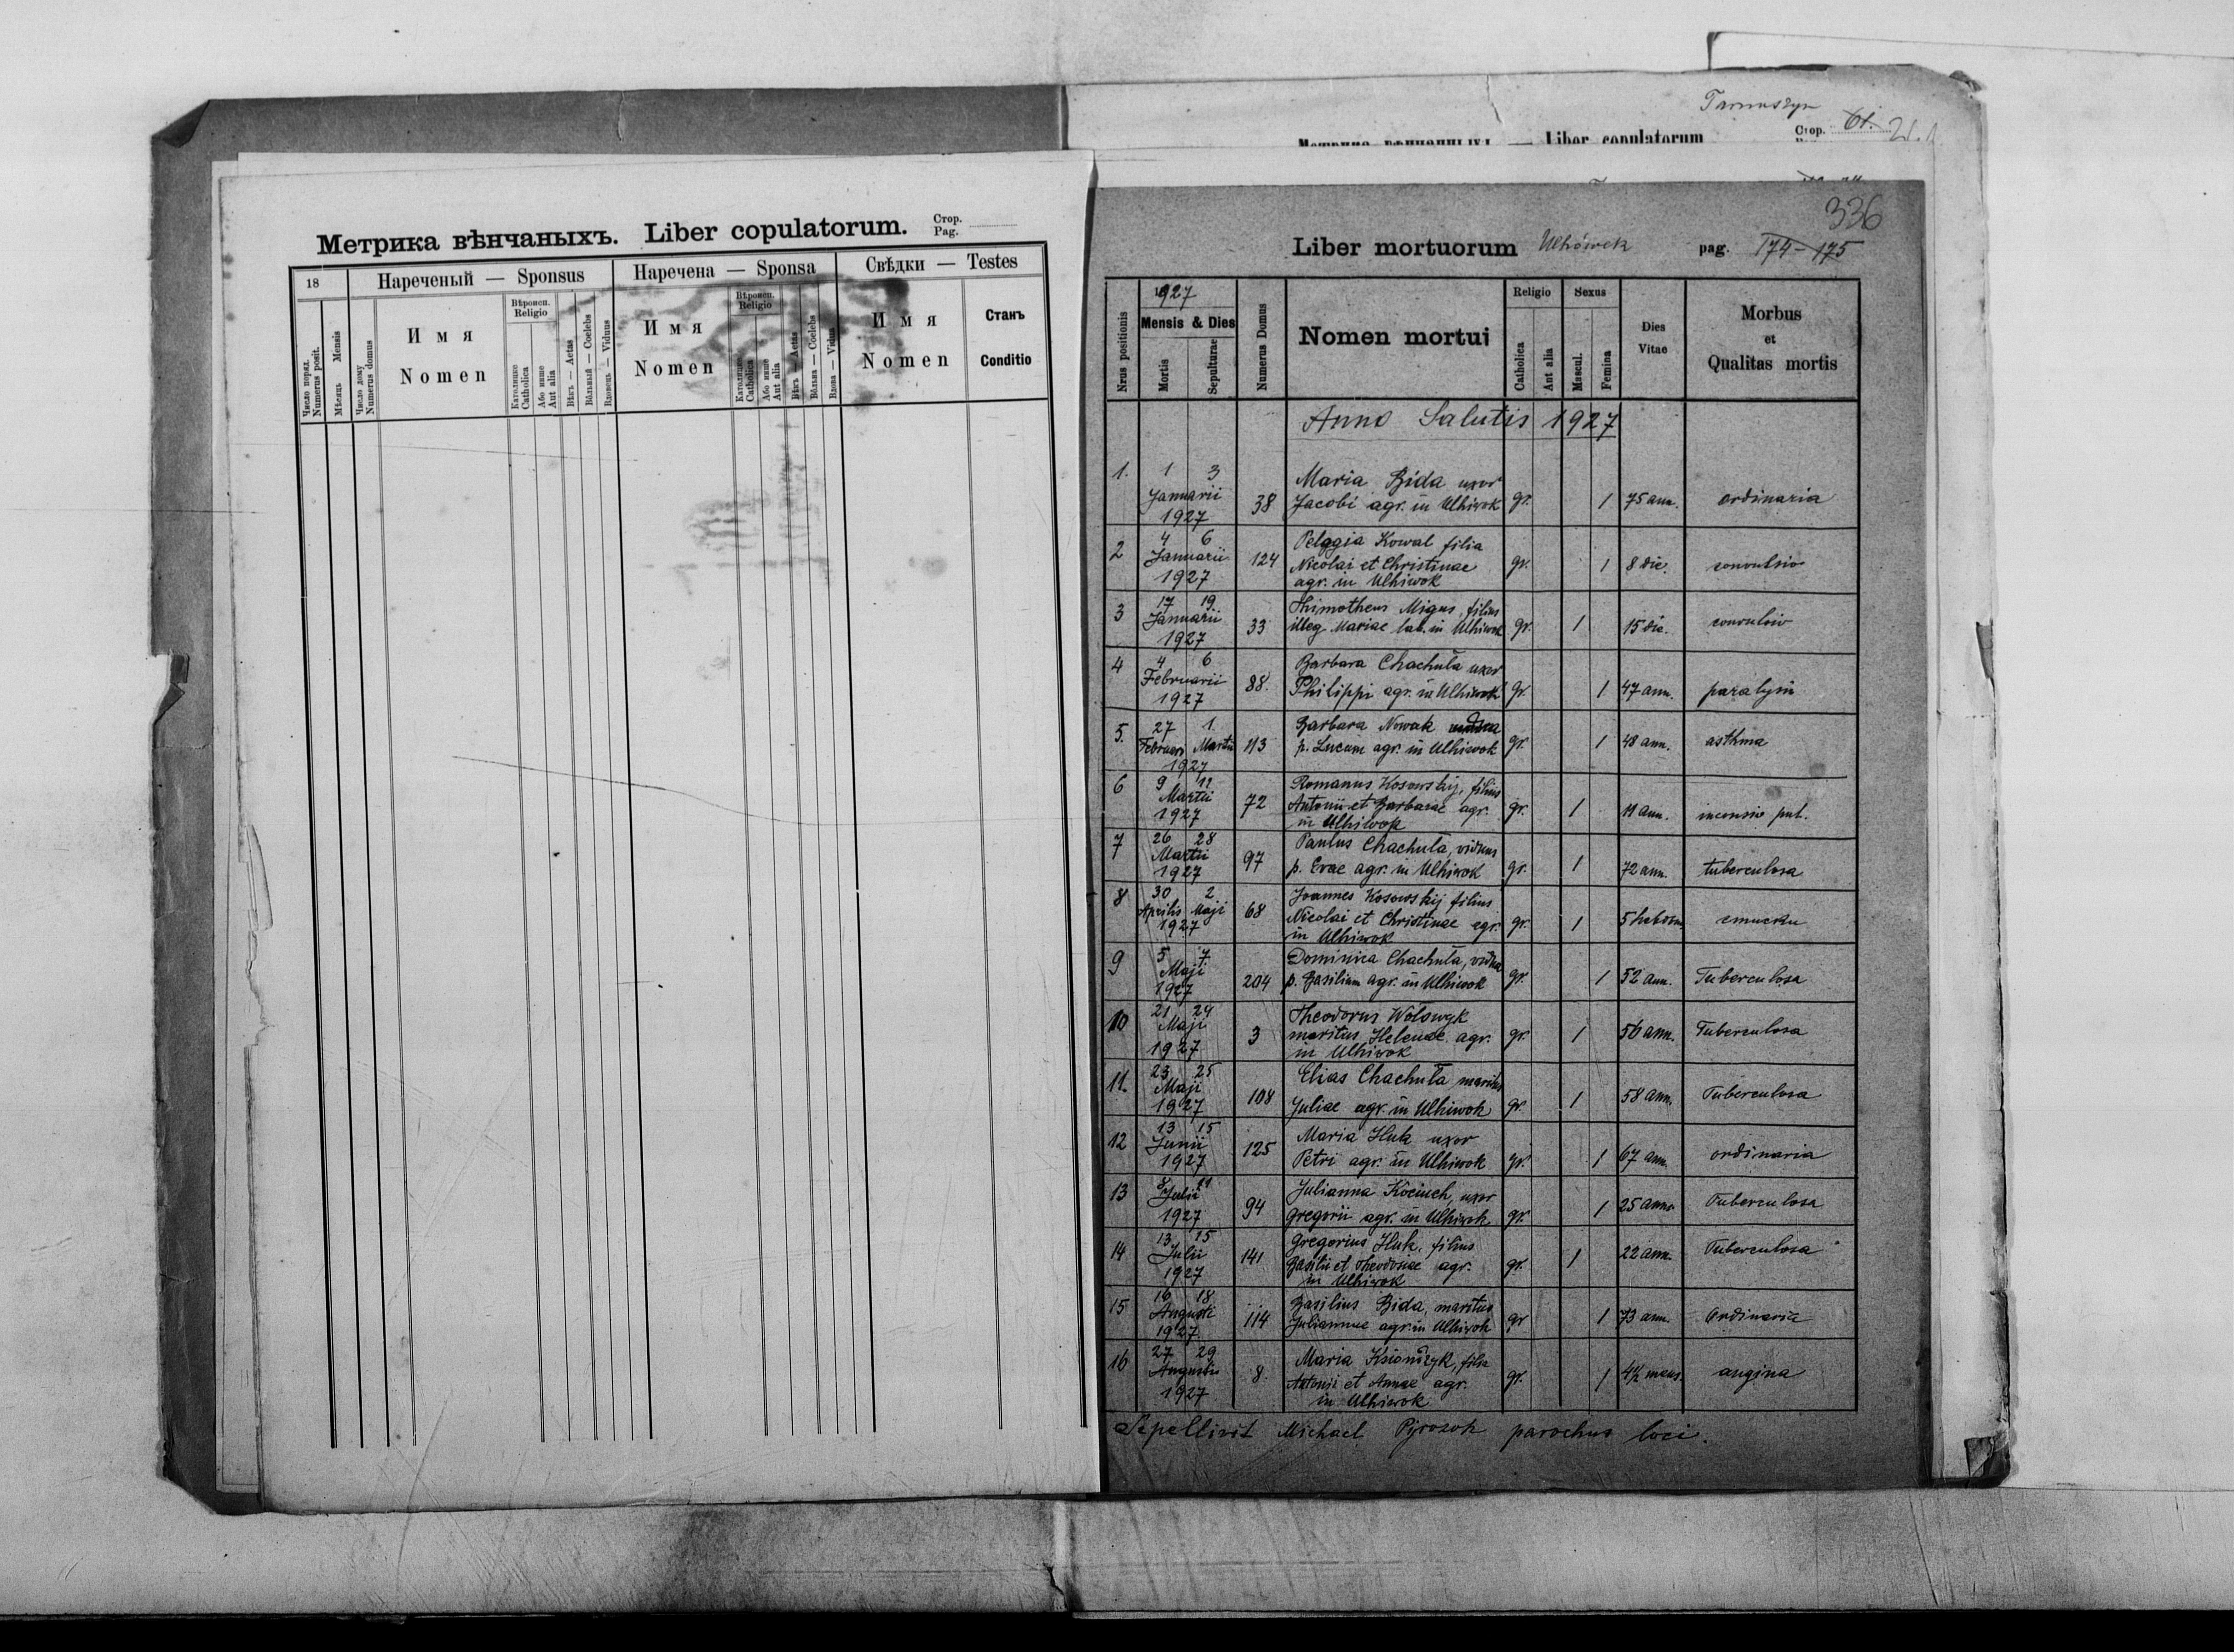 Tarnoszyn
Стор. 61. 21.
Метрика вѣнчанныхъ — Liber copulatorum
Метрика вѣнчаныхъ. Liber copulatorum. Стор. Pag.
18
Нареченый — Sponsus
Наречена — Sponsa
Свѣдки — Testes
Число поряд. Numerus posit.
Мѣсяць Mensis
Число дому Numerus domus
Имя
Nomen
Вѣроисп. Religio
Католицке Catholica
Або инше Aut alia
Вѣкъ — Aetas
Вôльный — Coelebs
Вдовець — Viduus
Имя
Nomen
Вѣроисп. Religio
Католицке Catholica
Або инше Aut alia
Вѣкъ — Aetas
Вôльна — Coelebs
Вдова — Vidua
Имя
Nomen
Станъ
Conditio
336
Liber mortuorum Ulhówek pag. 174-175
Nrus positionis
1927
Mensis & Dies
Mortis
Sepulturae
Numerus Domus
Nomen mortui
Religio
Catholica
Aut alia
Sexus
Mascul.
Femina
Dies Vitae
Morbus et Qualitas mortis
Anno Salutis 1927
1. 1 3 Maria Bida uxor
Januarii 38 Jacobi agr. in Ulhiwok gr. 1 75 ann. ordinaria
1927
2 4 6 Pelagia Kowal filia
Januarii 124 Nicolai et Christinae gr. 1 8 die. convulsio
1927 agr. in Ulhiwok
3 17 19 Thimotheus Migus, filius
Januarii 33 illeg. Mariae lab. in Ulhiwok gr. 1 15 die. convulsio
1927
4 4 6 Barbara Chachuła uxor
Februarii 88. Philippi agr. in Ulhiwok gr. 1 47 ann. paralysis
1927
5. 27 1. Barbara Nowak vidua
Februari Martii 113 p. Lucam agr. in Ulhiwok gr. 1 48 ann. asthma
1927
6 9 11 Romanus Kosowskij, filius
Martii 72 Antonii et Barbarae agr. gr. 1 11 ann. incensio pul.
1927 in Ulhiwok
7 26 28 Paulus Chachuła, viduus
Martii 97 p. Evae agr. in Ulhiwok gr. 1 72 ann. tuberculosa
1927
8 30 2 Joannes Kosowskij filius
Aprilis Maji 68 Nicolai et Christinae agr. gr. 1 5 hebdom.
1927 in Ulhiwok
9 5 7 Dominica Chachuła, vidua
Maji 204 p. Basilium agr. in Ulhiwok gr. 1 52 ann. Tuberculosa
1927
10 21 24 Theodorus Wołowyk
Maji 3 maritus Helenae agr. gr. 1 56 ann. Tuberculosa
1927 in Ulhiwok
11. 23 25 Elias Chachuła maritus
Maji 108 Juliae agr. in Ulhiwok gr. 1 58 ann. Tuberculosa
1927
12 13 15 Maria Huk uxor
Junii 125 Petri agr. in Ulhiwok gr. 1 67 ann. ordinaria
1927
13 8 11 Julianna Kociuch, uxor
Julii 94 Gregorii agr. in Ulhiwok gr. 1 25 anno Tuberculosa
1927
14 13 15 Gregorius Huk, filius
Julii 141 Basilii et Theodosiae agr. gr. 1 22 ann. Tuberculosa
1927 in Ulhiwok
15 16 18 Basilius Bida, maritus
Augusti 114 Juliannae agr. in Ulhiwok gr 1 73 ann. Ordinaria
1927
16 27 29 Maria Ksiondzyk, filia
Augusti 8. Antonii et Annae agr. gr. 1 4½ mens. angina
1927 in Ulhiwok
Sepellivit Michael Pyrozok parochus loci.